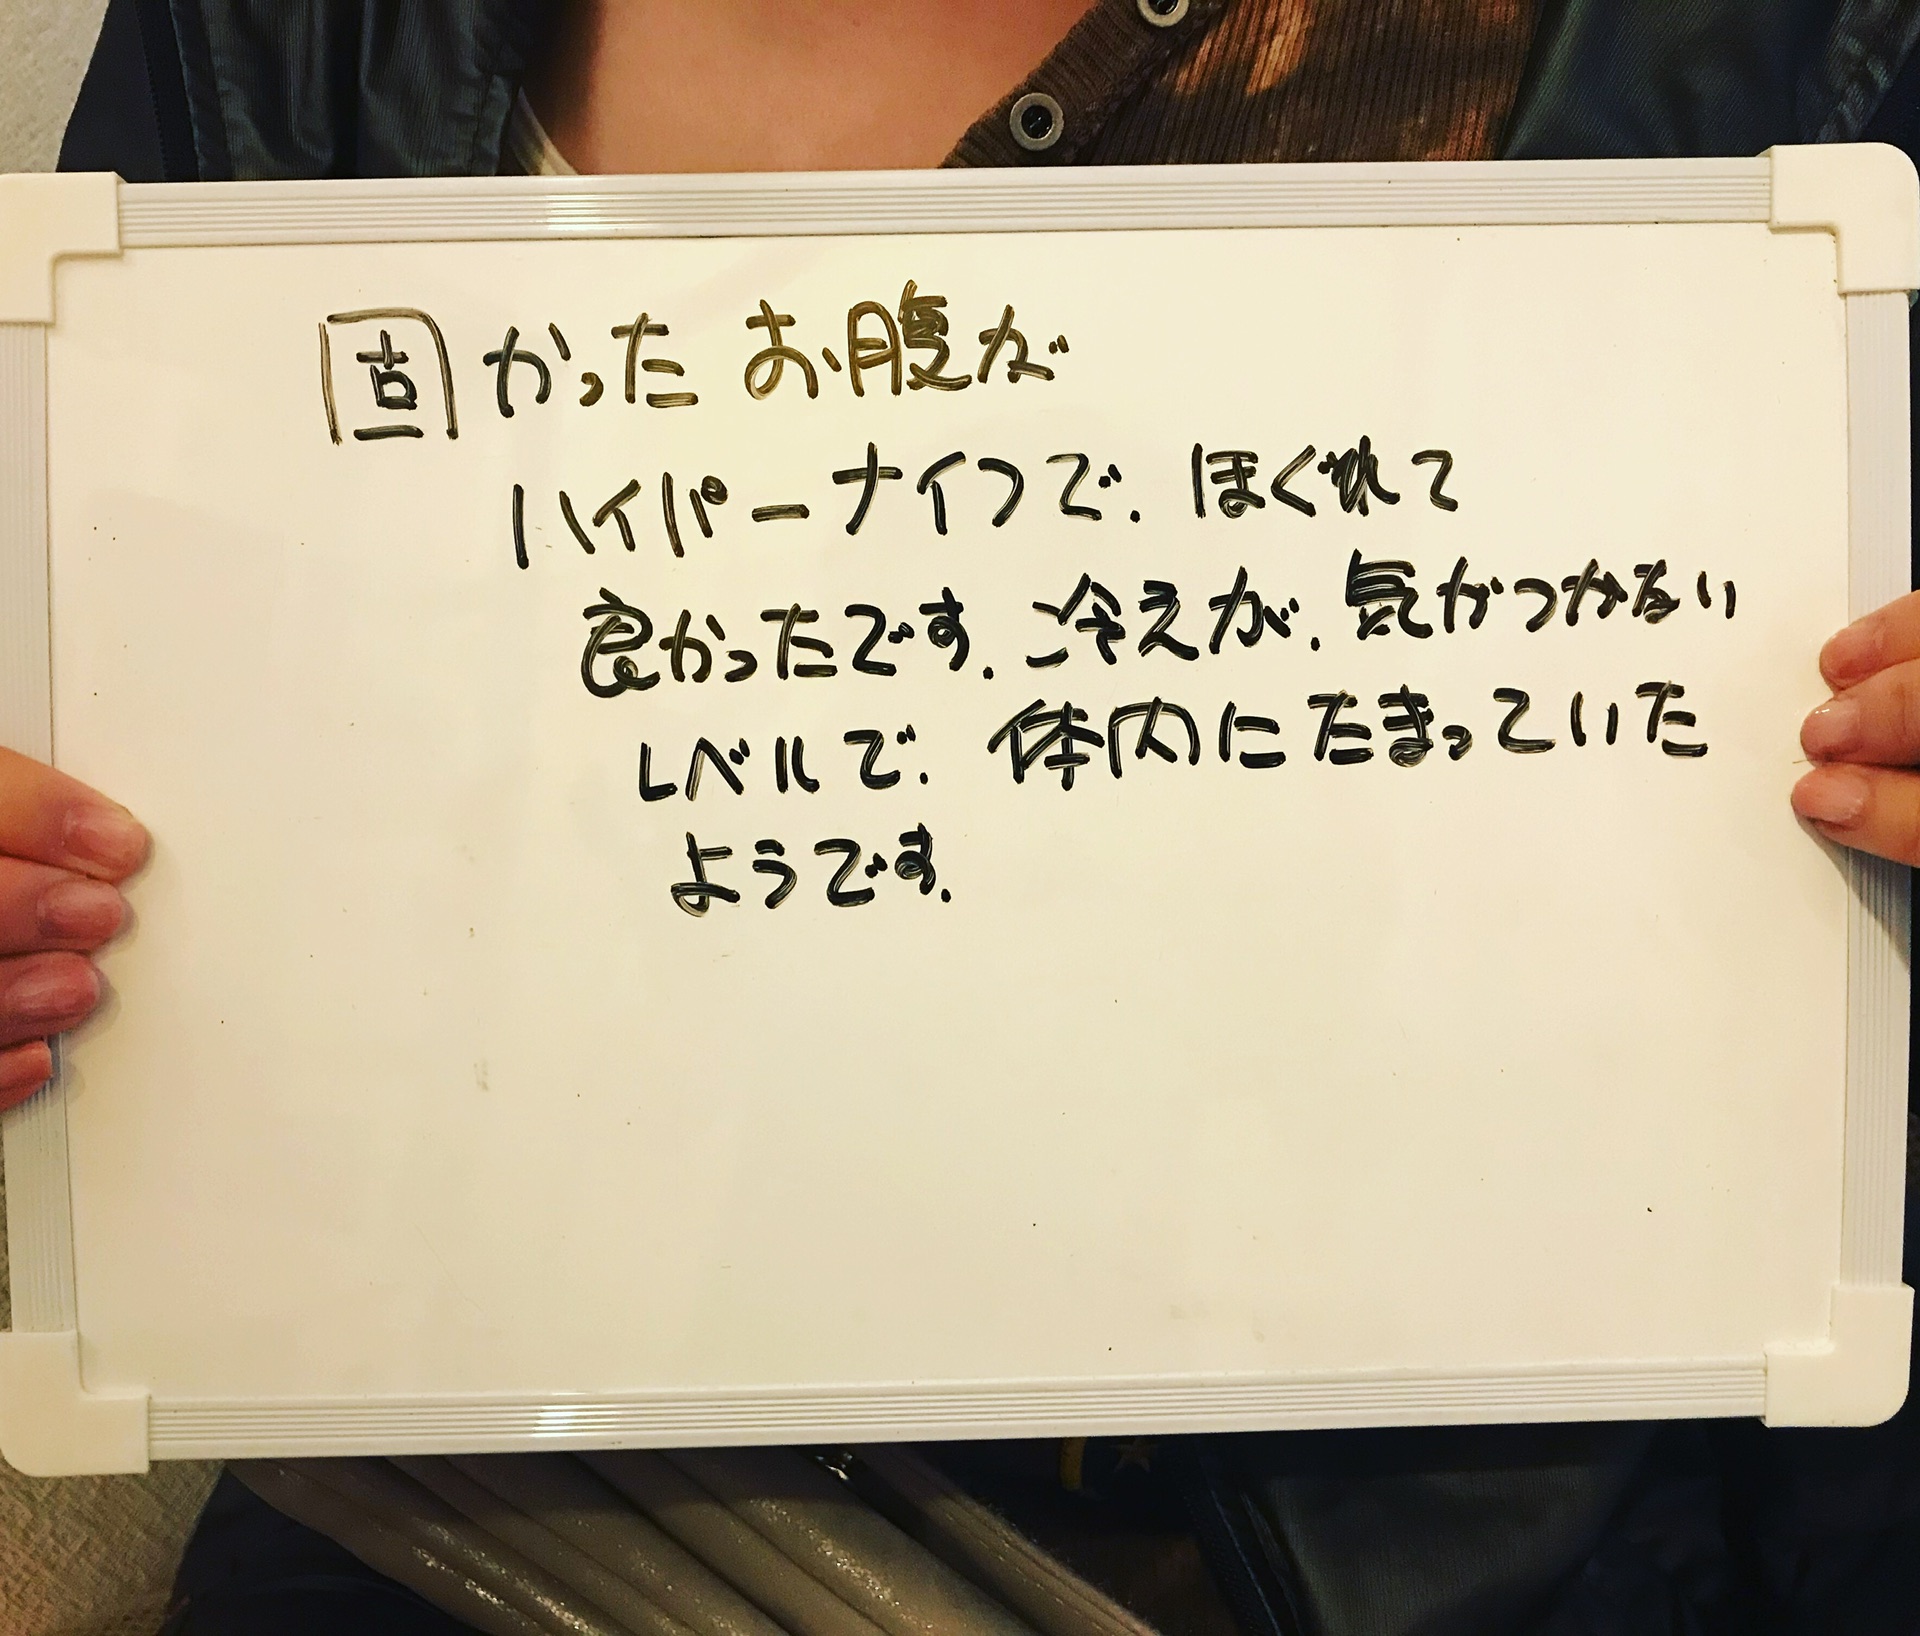 固かったお腹が
ハイパーナイフで.ほぐれて
良かったです.冷えが.気がつかない
レベルで.体内にたまっていた
ようです.